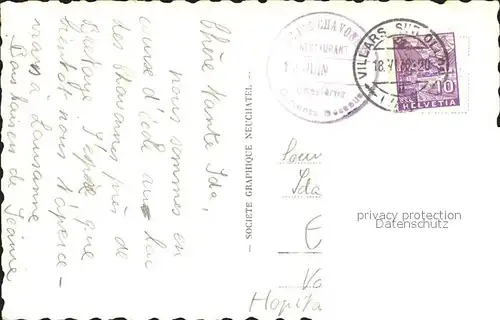 Chère tante Ida,
nous sommes en
course d'école au lac
des Chavonnes près de
Bretaye. J'espère que
bientôt nous t'aperce-
vrons à Lausanne
Bons baisers de
– SOCIETE GRAPHIQUE NEUCHATEL –
RESTAURANT
JUIN
VILLARS SUR OLLON
18.VI
10
HELVETIA
Soeu
Ida
E
Hopita
privacy protection
Datenschutz